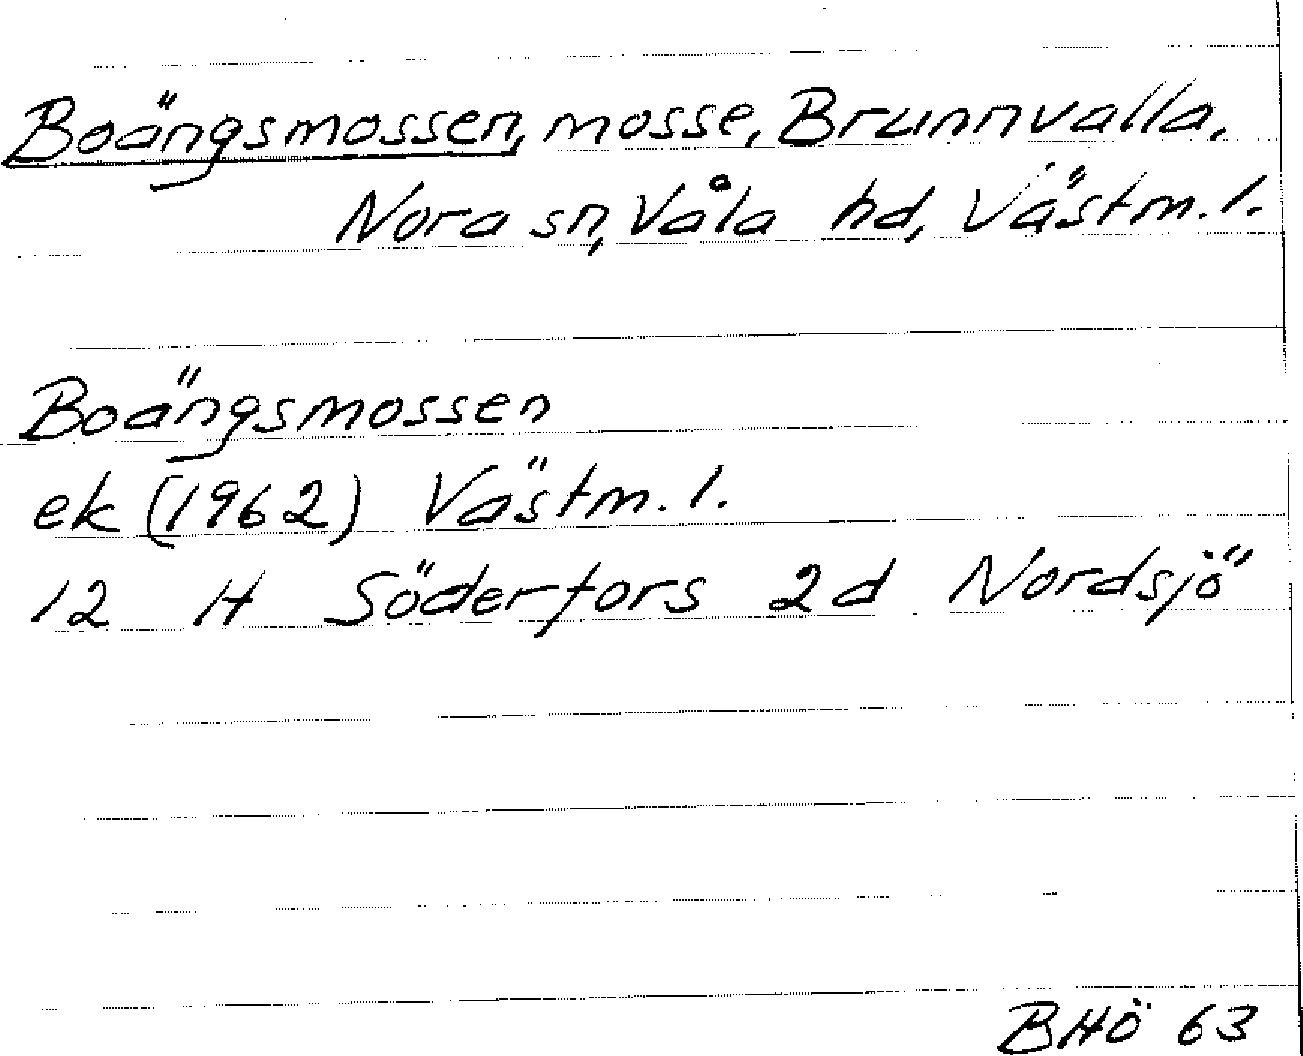 Boängsmossen, mosse, Brunnvalla,
Nora sn, Våla hd, Västm. l.
Boängsmossen
ek (1962) Västm. l.
12 H Söderfors 2d Nordsjö
BHÖ 63